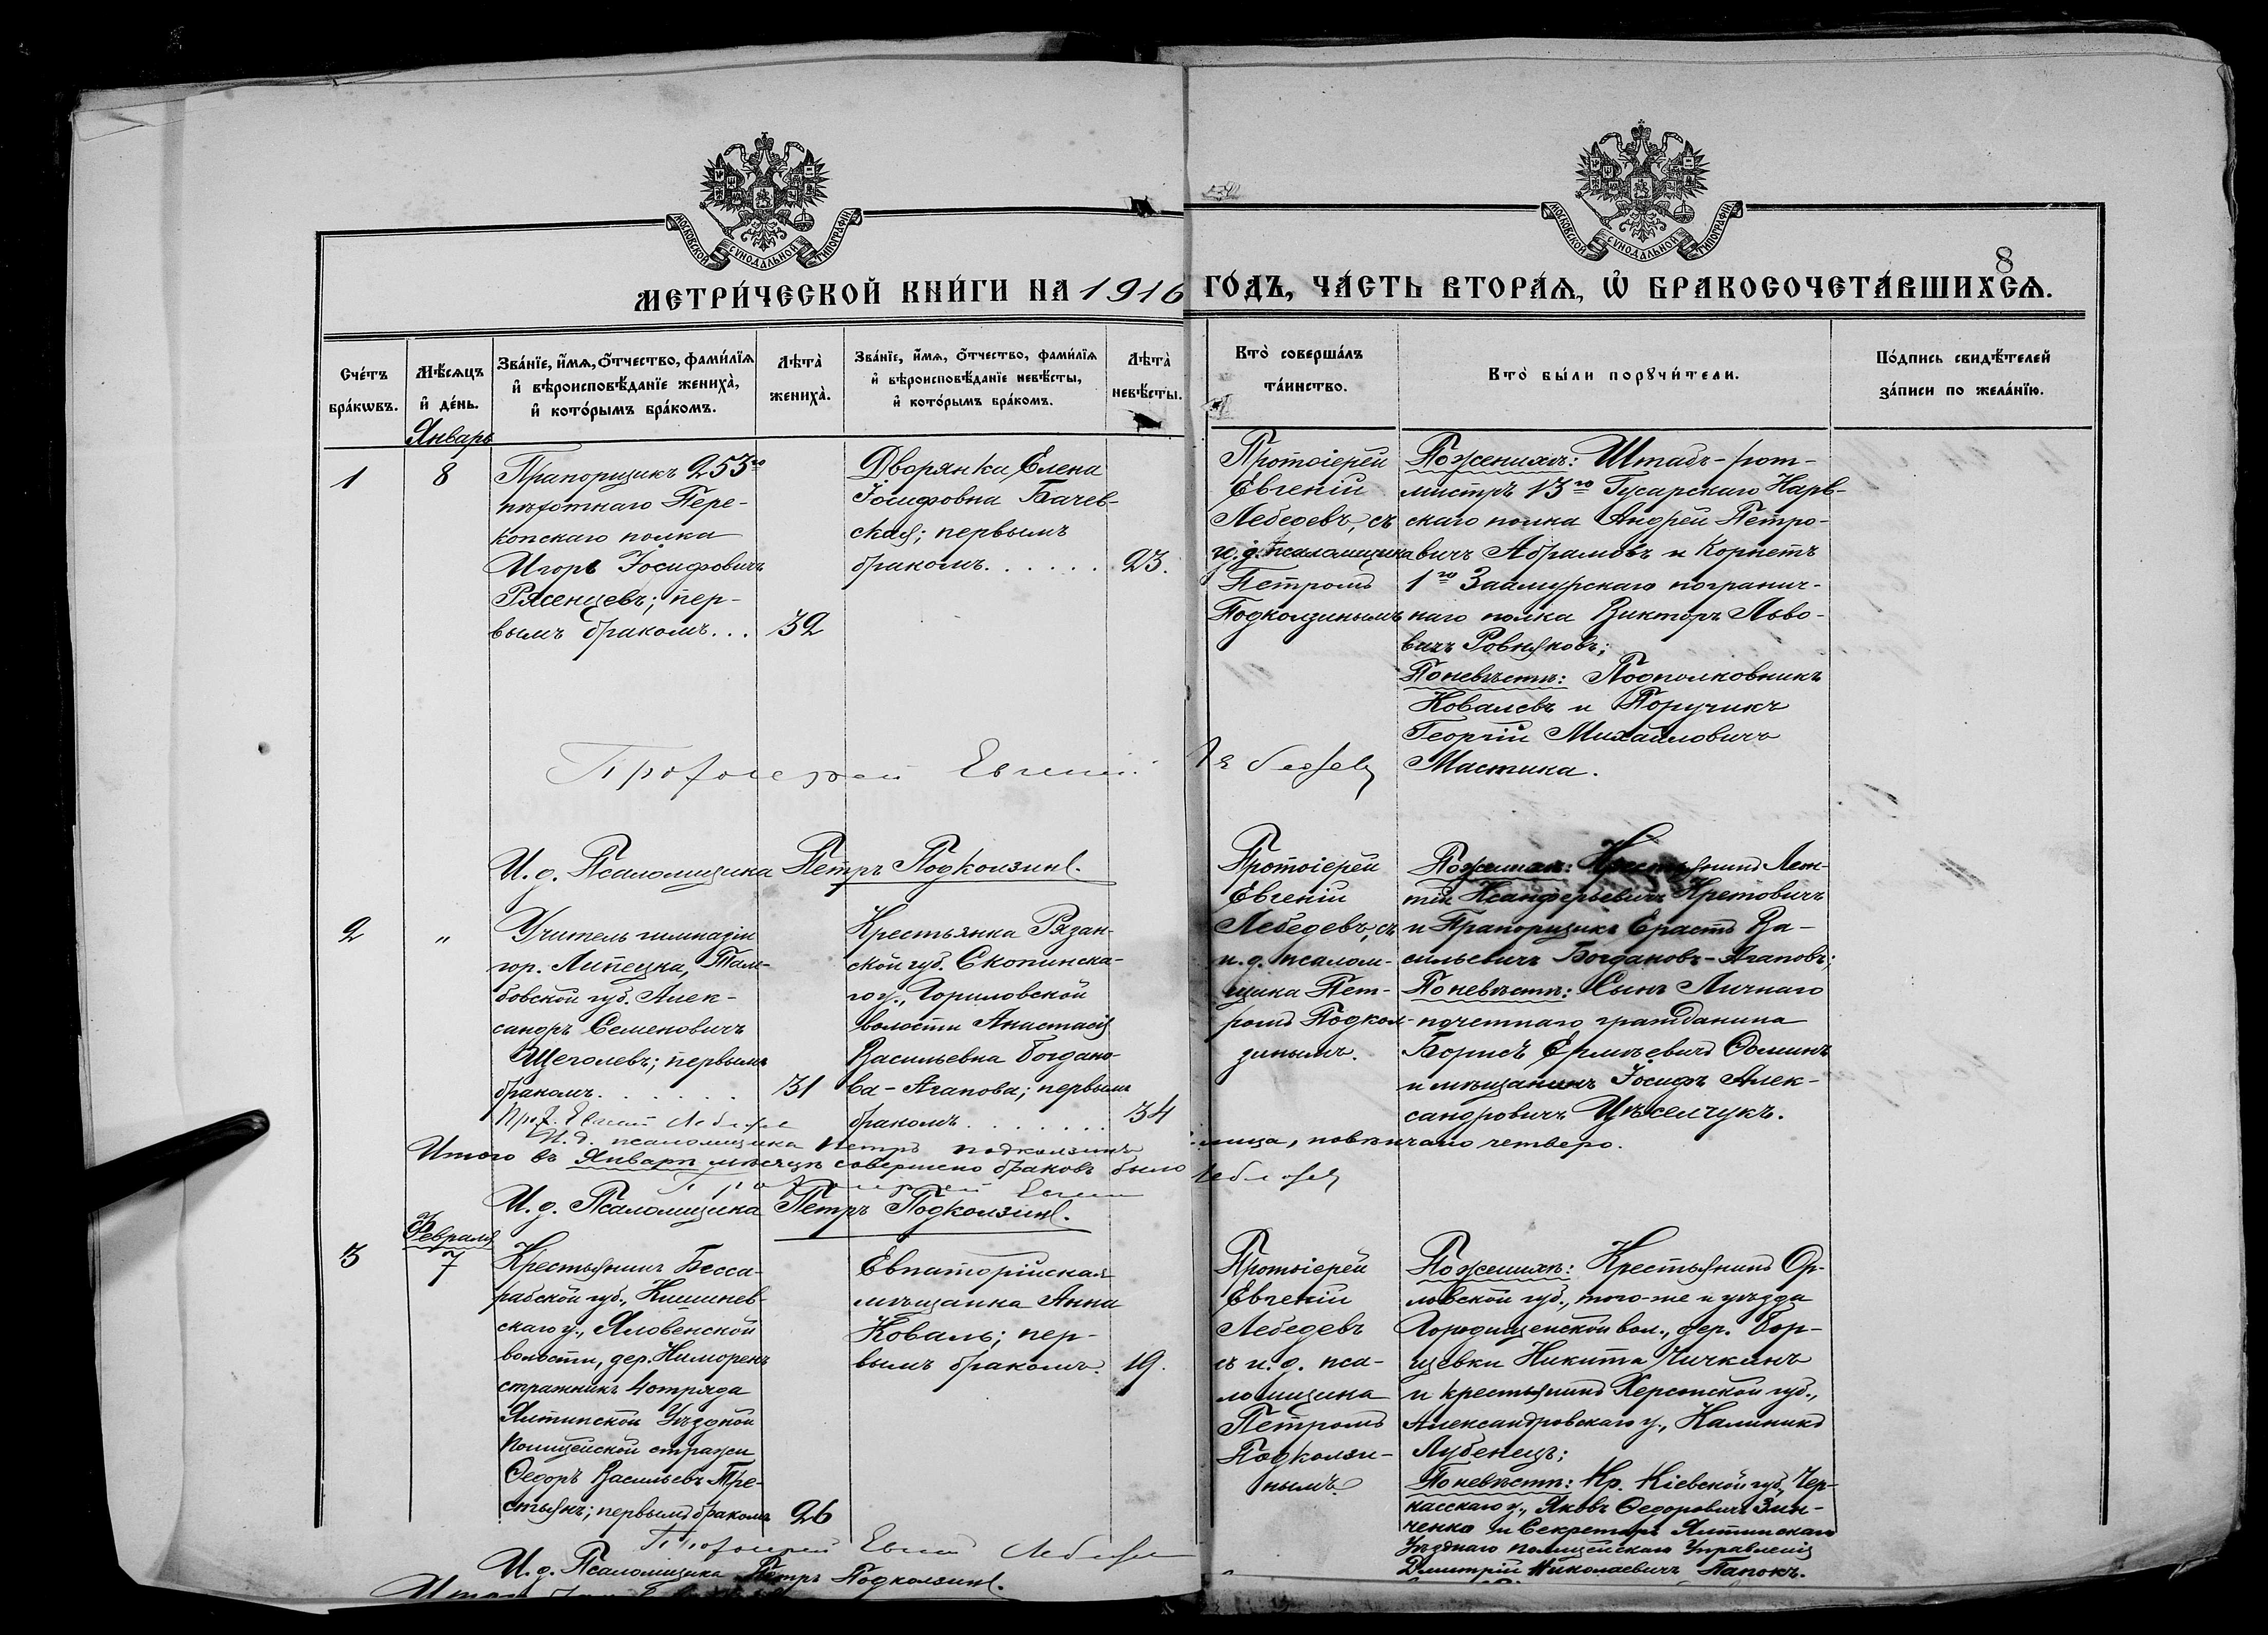 МОСКОВСКОЙ СѴНОДАЛЬНОЙ ТИПОГРАФІИ
МОСКОВСКОЙ СѴНОДАЛЬНОЙ ТИПОГРАФІИ
8
МЕТРИ́ЧЕСКОЙ КНИ́ГИ НА 1916 ГО́ДЪ, ЧА́СТЬ ВТОРА́Ѧ, Ѽ БРАКОСОЧЕТА́ВШИХСѦ.
Сче́тъ
бра́кѡвъ.
Мѣ́сѧцъ
и҆ де́нь.
Зва́нїе, и҆́мѧ, ѻ҆́тчество, фами́лїѧ
и҆ вѣроисповѣ́данїе жениха̀,
и҆ кото́рымъ бра́комъ.
Лѣта̀
жениха̀.
Зва́нїе, и҆́мѧ, ѻ҆́тчество, фами́лїѧ
и҆ вѣроисповѣ́данїе невѣ́сты,
и҆ кото́рымъ бра́комъ.
Лѣта̀
невѣ́сты.
Кто̀ соверша́лъ
та́инство.
Кто̀ бы́ли порꙋчи́тели.
По́дпись свидѣ́телей
за́писи по жела́нїю.
Январь
1
8
Прапорщикъ 253го
пѣхотнаго Пере-
копскаго полка
Игорь Іосифовичъ
Рясенцевъ; пер-
вымъ бракомъ...
32
Дворянка Елена
Іосифовна Бачев-
ская; первымъ
бракомъ......
23.
Протоіерей
Евгеній
Лебедевъ, съ
и.д. псаломщика
Петромъ
Подколзинымъ
По женихѣ: Штабъ-рот-
мистръ 13го Гусарскаго Нарв-
скаго полка Андрей Петро-
вичъ Абрамовъ и Корнетъ
1го Заамурскаго погранич-
наго полка Викторъ Льво-
вичъ Ровняковъ;
По невѣстѣ: Подполковникъ
Ковалевъ и Поручикъ
Георгій Михайловичъ
Мастика.
Протоіерей Евгеній Лебедевъ
И.д. Псаломщика Петръ Подколзинъ.
2
"
Учитель гимназіи
гор. Липецка, Там-
бовской губ. Алек-
сандръ Семеновичъ
Щеголевъ; первымъ
бракомъ......
31
Крестьянка Рязан-
ской губ. Скопинска-
го у., Гориловской
волости Анастасія
Васильевна Богдано-
ва-Агапова; первымъ
бракомъ.......
34
Протоіерей
Евгеній
Лебедевъ, съ
и.д. псалом-
щика Пет-
ромъ Подкол-
зинымъ.
По женихѣ: Крестьянинъ Леон-
тій Ксанфербевичъ Кретовичъ
и Прапорщикъ Ерастъ Ва-
сильевичъ Богдановъ-Агаповъ;
По невѣстѣ: Сынъ Личнаго
почетнаго гражданина
Борисъ Ермѣевичъ Ѳоминъ
и мѣщанинъ Іосифъ Алек-
сандровичъ Цѣсельчукъ.
Прот. Евгеній Лебедевъ
И.д. псаломщика Петръ Подколзинъ
Итого въ Январѣ мѣсяцѣ совершено браковъ было лица, повѣнчано четверо.
Протоіерей Евгеній Лебедевъ
И.д. Псаломщика Петръ Подколзинъ.
Февраля
3
7
Крестьянинъ Бесса-
рабской губ., Кишинев-
скаго у., Яловенской
волости, дер. Ниморенъ
стражникъ 4 отряда
Ялтинской Уѣздной
Полицейской стражи
Ѳедоръ Васильевъ Тре-
стьянъ; первымъ бракомъ
26
Евпаторійская
мѣщанка Анна
Коваль; пер-
вымъ бракомъ.
19.
Протоіерей
Евгеній
Лебедевъ
съ и.д. пса-
ломщика
Петромъ
Подколзи-
нымъ.
По женихѣ: Крестьянинъ Ор-
ловской губ., того-же и уѣзда
Городищенской вол., дер. Бор-
щевки Никита Чичкинъ
и крестьянинъ Херсонской губ.,
Александровскаго у., Калиникъ
Лубенецъ;
По невѣстѣ: Кр. Кіевской губ., Чер-
касскаго у., Яковъ Ѳедоровичъ Зин-
ченко и Секретарь Ялтинскаго
Уѣзднаго полицейскаго Управленія
Дмитрій Николаевичъ Папокъ.
Протоіерей Евгеній Лебедевъ
И.д. Псаломщика Петръ Подколзинъ.